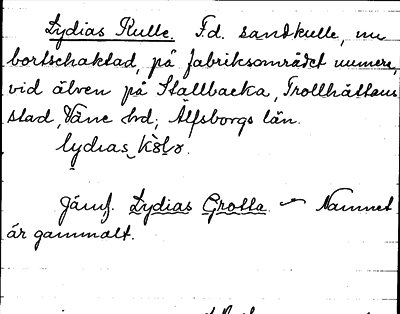 Lydias Kulle. F.d. sandkulle, nu
bortschaktad, på fabriksområdet numera,
vid älven på Stallbacka, Trollhättans
stad, Väne hd, Älfsborgs län.
lydias
Jämf. Lydias Grotta — Namnet
är gammalt.